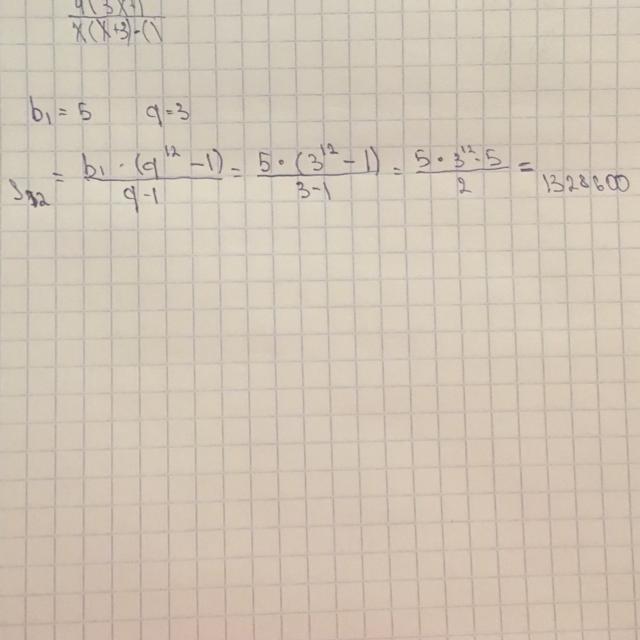 x(x+3)-()
b₁ = 5 q=3
S₁₂ = b₁ · (q¹² - 1) / q-1 = 5 · (3¹² - 1) / 3-1 = 5 · 3¹² - 5 / 2 = 1328600